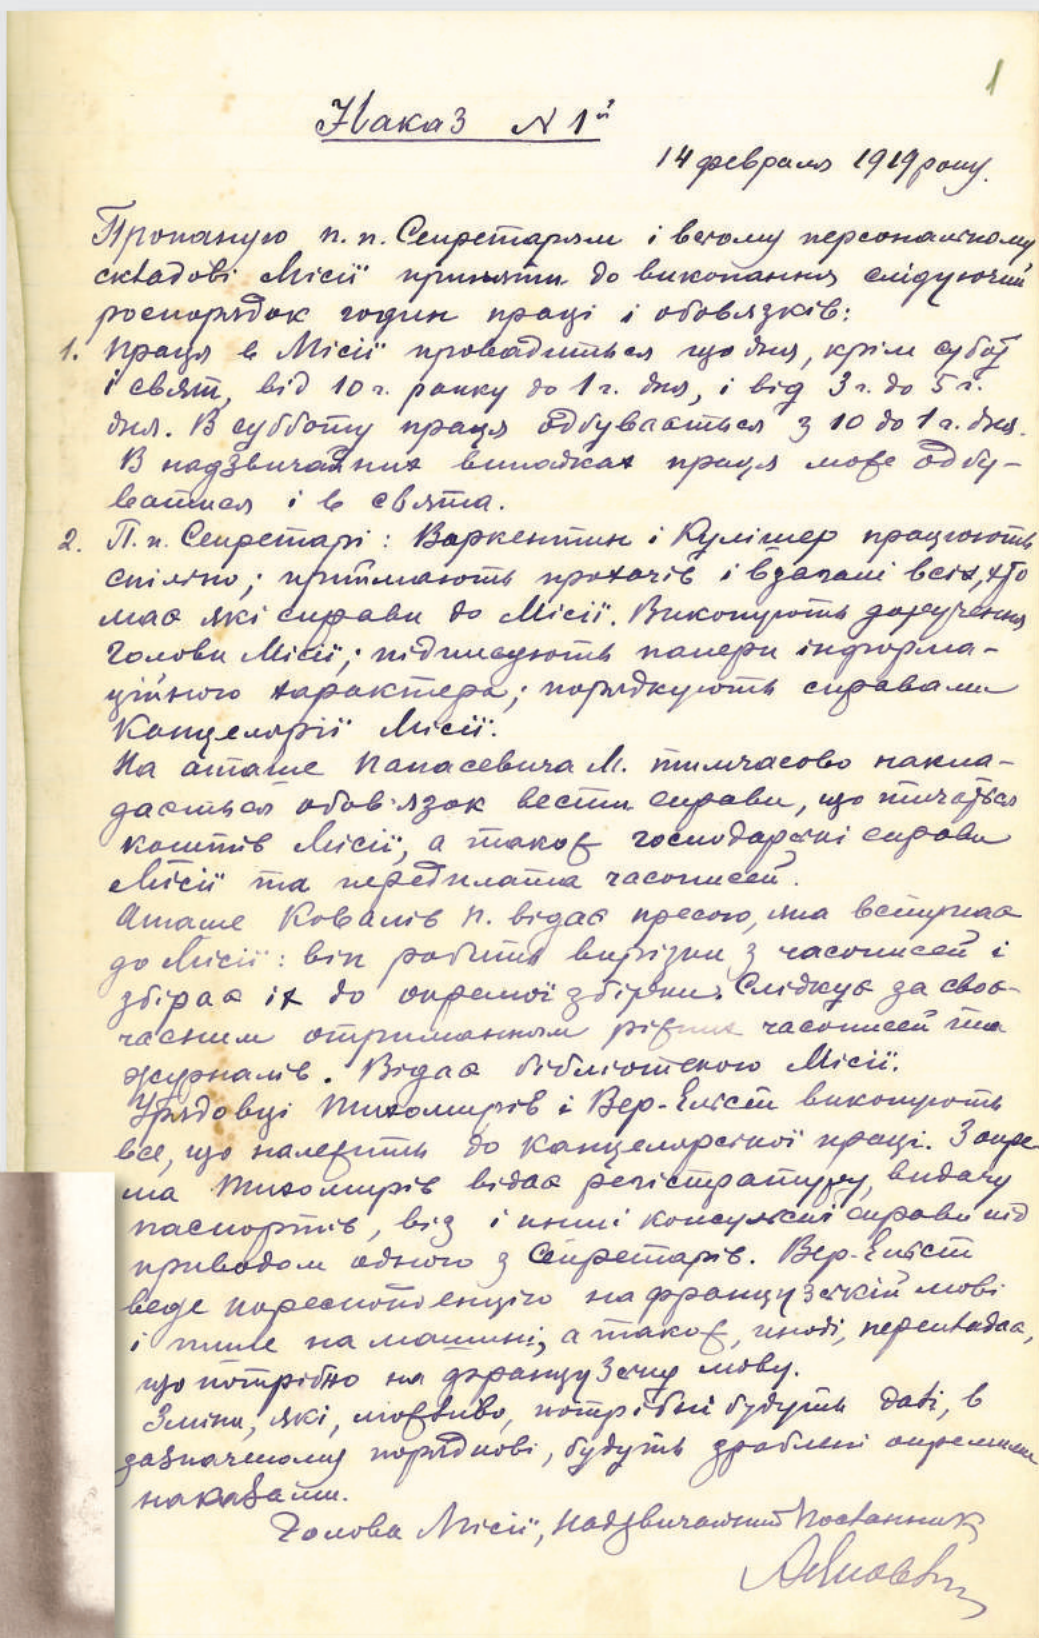 1
Наказ N 1й
14 февраля 1919 року.
Пропаную п.п. Секретарям і всьому персональному
складові Місії приняти до виконання слідуючий
роспорядок годин праці і обовязків:
1. Праця в Місії провадиться що дня, крім субот
і свят, від 10 г. ранку до 1 г. дня, і від 3 г. до 5 г.
дня. В субботу праця одбувається з 10 до 1 г. дня.
В надзвичайних випадках праця може одбу-
ватися і в свята.
2. П.п. Секретарі: Варкентин і Кулішер працюють
спільно; приймають прохачів і взагалі всіх, хто
має які справи до Місії. Виконують доручення
Голови Місії; підписують папери інформа-
ційного характера; порядкують справами
Канцелярії Місії.
На аташе Панасевича М. тимчасово накла-
дається обов'язок вести справи, що тичаться
коштів Місії, а також господарські справи
Місії та передплата часописей.
Аташе Ковалів П. відає пресою, яка вступає
до Місії: він робить вирізки з часописей і
збірає їх до окремої збірки. Слідкує за своє-
часним отриманням ріжних часописей та
журналів. Відає бібліотекою Місії.
Урядовці Тихомирів і Вер-Еліст виконують
все, що належить до канцелярської праці. Зокре-
ма Тихомирів відає регістратуру, видачу
паспортів, віз і инші консульські справи під
приводом одного з Секретарів. Вер-Еліст
веде кореспонденцію на французській мові
і пише на машині, а також, иноді, перекладає,
що потрібно на французську мову.
Зміни, які, можливо, потрібні будуть далі, в
зазначеному порядкові, будуть зроблені окремими
наказами.
Голова Місії, Надзвичайний Посланник